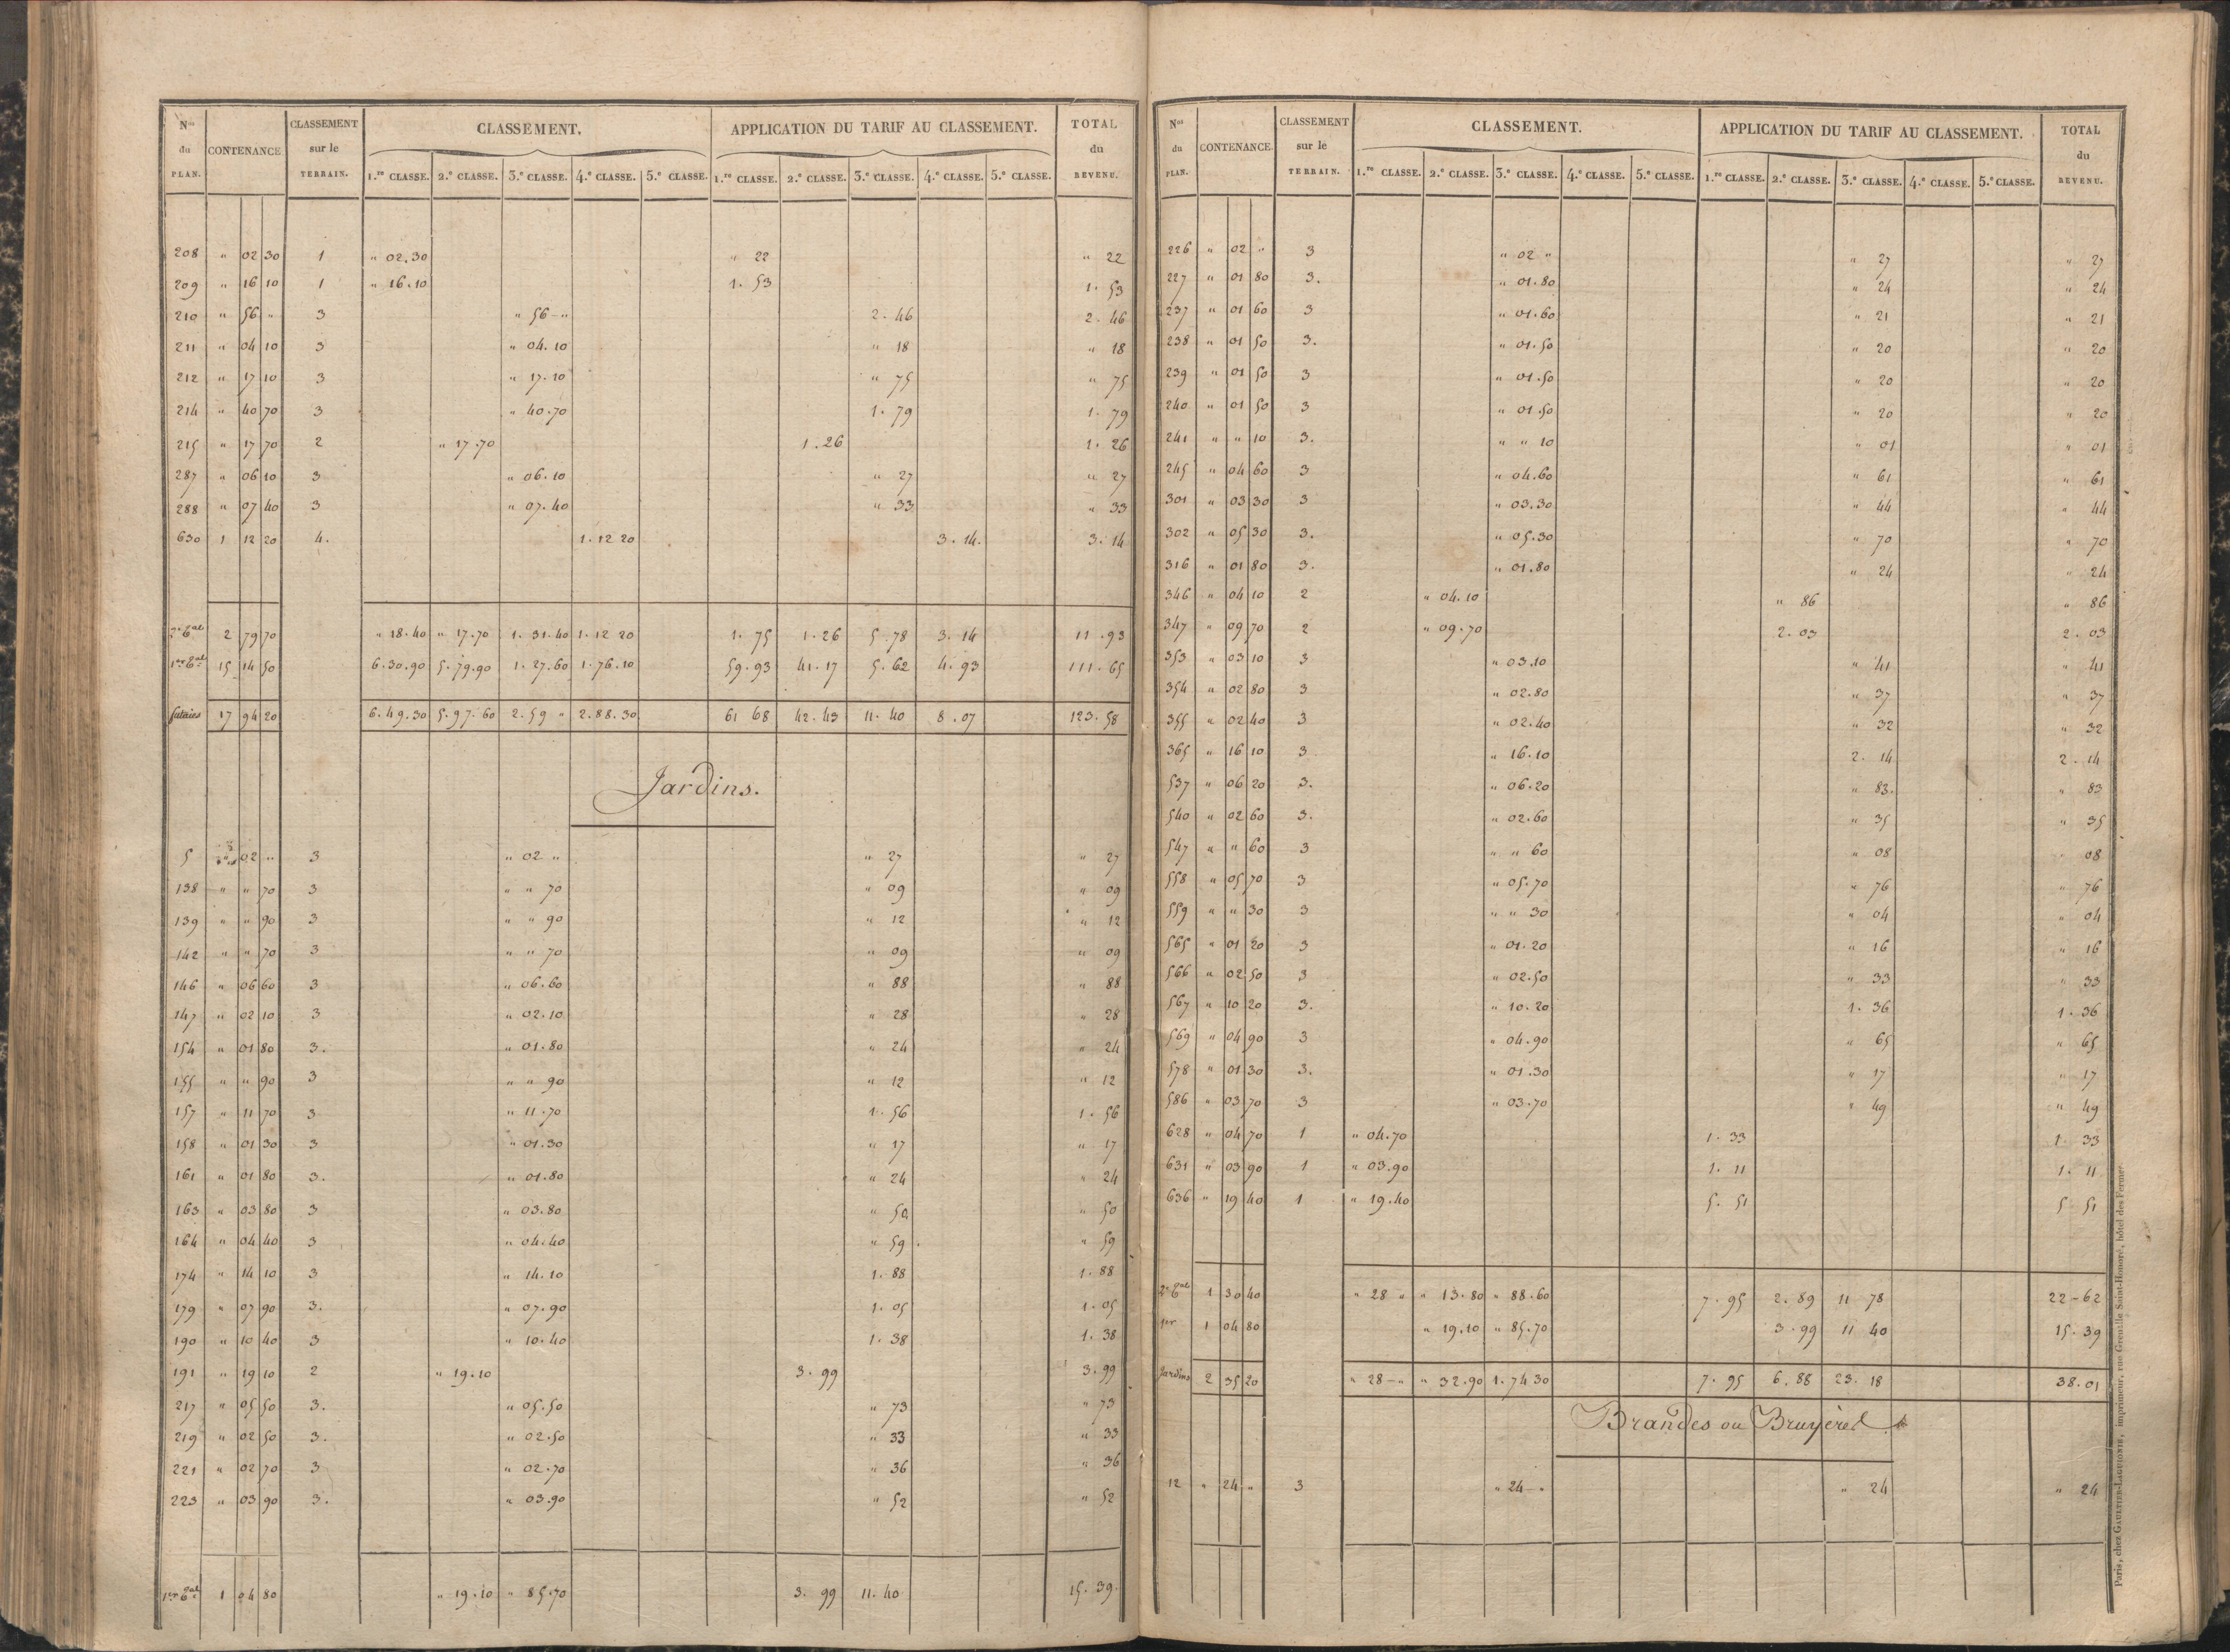 Nos du PLAN. CONTENANCE CLASSEMENT sur le TERRAIN. CLASSEMENT. APPLICATION DU TARIF AU CLASSEMENT. TOTAL du REVENU.
1.re CLASSE. 2.e CLASSE. 3.e CLASSE. 4.e CLASSE. 5.e CLASSE. 1.re CLASSE. 2.e CLASSE. 3.e CLASSE. 4.e CLASSE. 5.e CLASSE.
208 " 02 30 1 " 02.30 " 22 " 22
209 " 16 10 1 " 16.10 1. 53 1. 53
210 " 56 " 3 " 56 - " 2. 46 2. 46
211 " 04 10 3 " 04. 10 " 18 " 18
212 " 17 10 3 " 17. 10 " 75 " 75
214 " 40 70 3 " 40.70 1. 79 1. 79
215 " 17 70 2 " 17.70 1. 26 1. 26
287 " 06 10 3 " 06. 10 " 27 " 27
288 " 07 40 3 " 07. 40 " 33 " 33
630 1 12 20 4. 1. 12 20 3. 14. 3. 14
2e tal 2 79 70 " 18.40 " 17.70 1. 31.40 1. 12 20 1. 75 1. 26 5. 78 3. 14 11. 93
1er tal 15 14 50 6.30.90 5.79.90 1. 27.60 1. 76.10 59. 93 41. 17 5. 62 4. 93 111. 65
futaies 17 94 20 6. 49. 30 5. 97. 60 2. 59 " 2. 88. 30 61 68 42. 43 11. 40 8. 07 123. 58
Jardins.
5 " 02 " 3 " 02 " " 27 " 27
138 " " 70 3 " " 70 " 09 " 09
139 " " 90 3 " " 90 " 12 " 12
142 " " 70 3 " " 70 " 09 " 09
146 " 06 60 3 " 06.60 " 88 " 88
147 " 02 10 3 " 02.10 " 28 " 28
154 " 01 80 3. " 01.80 " 24 " 24
155 " " 90 3 " " 90 " 12 " 12
157 " 11 70 3 " 11.70 1. 56 1. 56
158 " 01 30 3 " 01.30 " 17 " 17
161 " 01 80 3. " 01.80 " 24 " 24
163 " 03 80 3 " 03.80 " 50 " 50
164 " 04 40 3 " 04.40 " 59. " 59
174 " 14 10 3 " 14.10 1. 88 1. 88
179 " 07 90 3. " 07.90 1. 05 1. 05
190 " 10 40 3 " 10.40 1. 38 1. 38
191 " 19 10 2 " 19.10 3. 99 3. 99
217 " 05 50 3. " 05.50 " 73 " 73
219 " 02 50 3. " 02.50 " 33 " 33
221 " 02 70 3 " 02.70 " 36 " 36
223 " 03 90 3. " 03.90 " 52 " 52
1er tal 1 04 80 " 19.10 " 85.70 3. 99 11. 40 15. 39.
Nos du PLAN. CONTENANCE. CLASSEMENT sur le TERRAIN. CLASSEMENT. APPLICATION DU TARIF AU CLASSEMENT. TOTAL du REVENU.
1.re CLASSE. 2.e CLASSE. 3.e CLASSE. 4.e CLASSE. 5.e CLASSE. 1.re CLASSE. 2.e CLASSE. 3.e CLASSE. 4.e CLASSE. 5.e CLASSE.
226 " 02 " 3 " 02 " " 27 " 27
227 " 01 80 3. " 01.80 " 24 " 24
237 " 01 60 3 " 01.60 " 21 " 21
238 " 01 50 3. " 01.50 " 20 " 20
239 " 01 50 3 " 01.50 " 20 " 20
240 " 01 50 3 " 01.50 " 20 " 20
241 " " 10 3. " " 10 " 01 " 01
245 " 04 60 3 " 04.60 " 61 " 61
301 " 03 30 3 " 03.30 " 44 " 44
302 " 05 30 3. " 05.30 " 70 " 70
316 " 01 80 3. " 01.80 " 24 " 24
346 " 04 10 2 " 04.10 " 86 " 86
347 " 09 70 2 " 09.70 2. 03 2. 03
353 " 03 10 3 " 03.10 " 41 " 41
354 " 02 80 3 " 02.80 " 37 " 37
355 " 02 40 3 " 02.40 " 32 " 32
365 " 16 10 3 " 16.10 2. 14 2. 14
537 " 06 20 3. " 06.20 " 83. " 83
540 " 02 60 3. " 02.60 " 35 " 35
547 " " 60 3 " " 60 " 08 " 08
558 " 05 70 3 " 05.70 " 76 " 76
559 " " 30 3 " " 30 " 04 " 04
565 " 01 20 3 " 01.20 " 16 " 16
566 " 02 50 3 " 02.50 " 33 " 33
567 " 10 20 3. " 10.20 1. 36 1. 36
569 " 04 90 3 " 04.90 " 65 " 65
578 " 01 30 3. " 01.30 " 17 " 17
586 " 03 70 3 " 03.70 " 49 " 49
628 " 04 70 1 " 04.70 1. 33 1. 33
631 " 03 90 1 " 03.90 1. 11 1. 11
636 " 19 40 1 " 19.40 5. 51 5 51
2e tal 1 30 40 " 28 " " 13.80 " 88.60 7. 95 2. 89 11 78 22-62
1er 1 04 80 " 19.10 " 85.70 3. 99 11 40 15. 39
Jardins 2 35 20 " 28 - " " 32.90 1. 74 30 7. 95 6. 88 23. 18 38.01
Brandes ou Bruyères
12 " 24 " 3 " 24 - " " 24 " 24
Paris, chez GAULTIER-LAGUIONIE, imprimeur, rue Grenelle Saint-Honoré, hôtel des Fermes.